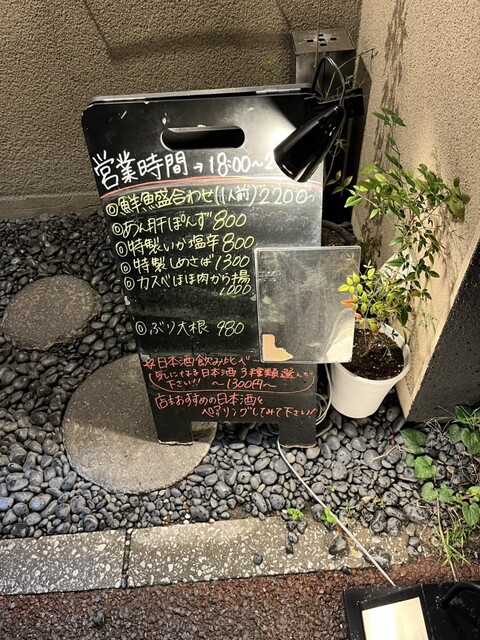 営業時間→18:00〜2
◎鮮魚盛合わせ(1人前)2200〜
◎あん肝ぽんず800
◎特製いか塩辛800
◎特製しめさば1300
◎カスベほほ肉から揚
1000
◎ぶり大根 980
☆日本酒飲み比べ
(気になる日本酒3種類選んで
下さい!! 〜1300円〜)
店主おすすめの日本酒と
ペアリングしてみて下さい!!